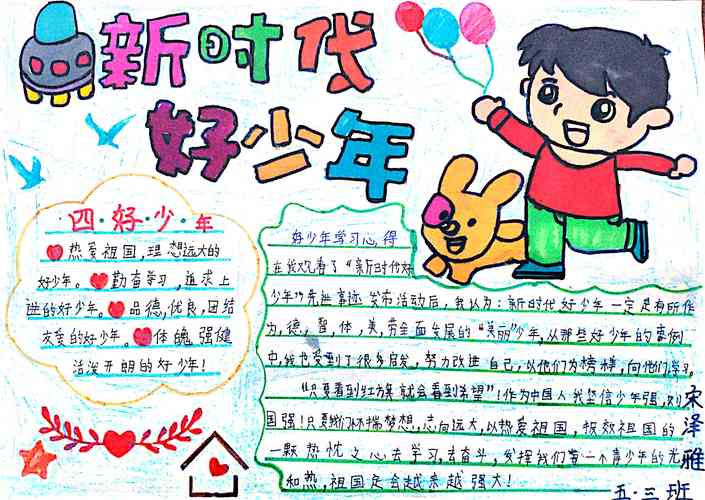 新时代
好少年
四·好·少·年
热爱祖国,理想远大的
好少年。勤奋学习,追求上
进的好少年。品德,优良,团结
友爱的好少年。体魄强健
活泼开朗的好少年!
好少年学习心得
在我观看了“新时代好
少年”先进事迹发布活动后,我认为:新时代好少年一定是有所作
为,德,智,体,美,劳全面发展的“美丽”少年,从那些好少年的事例
中,我也受到了很多启发,努力改进自己,以他们为榜样,向他们学习,
“只要看到红方案就会看到希望”!作为中国人我坚信少年强,则
国强!只要我们怀揣梦想,志向远大,以热爱祖国,报效祖国的
一颗热忱之心去学习,去奋斗,发挥我们每一个青少年的光
和热,祖国定会越来越强大!
宋泽雅
五·三班